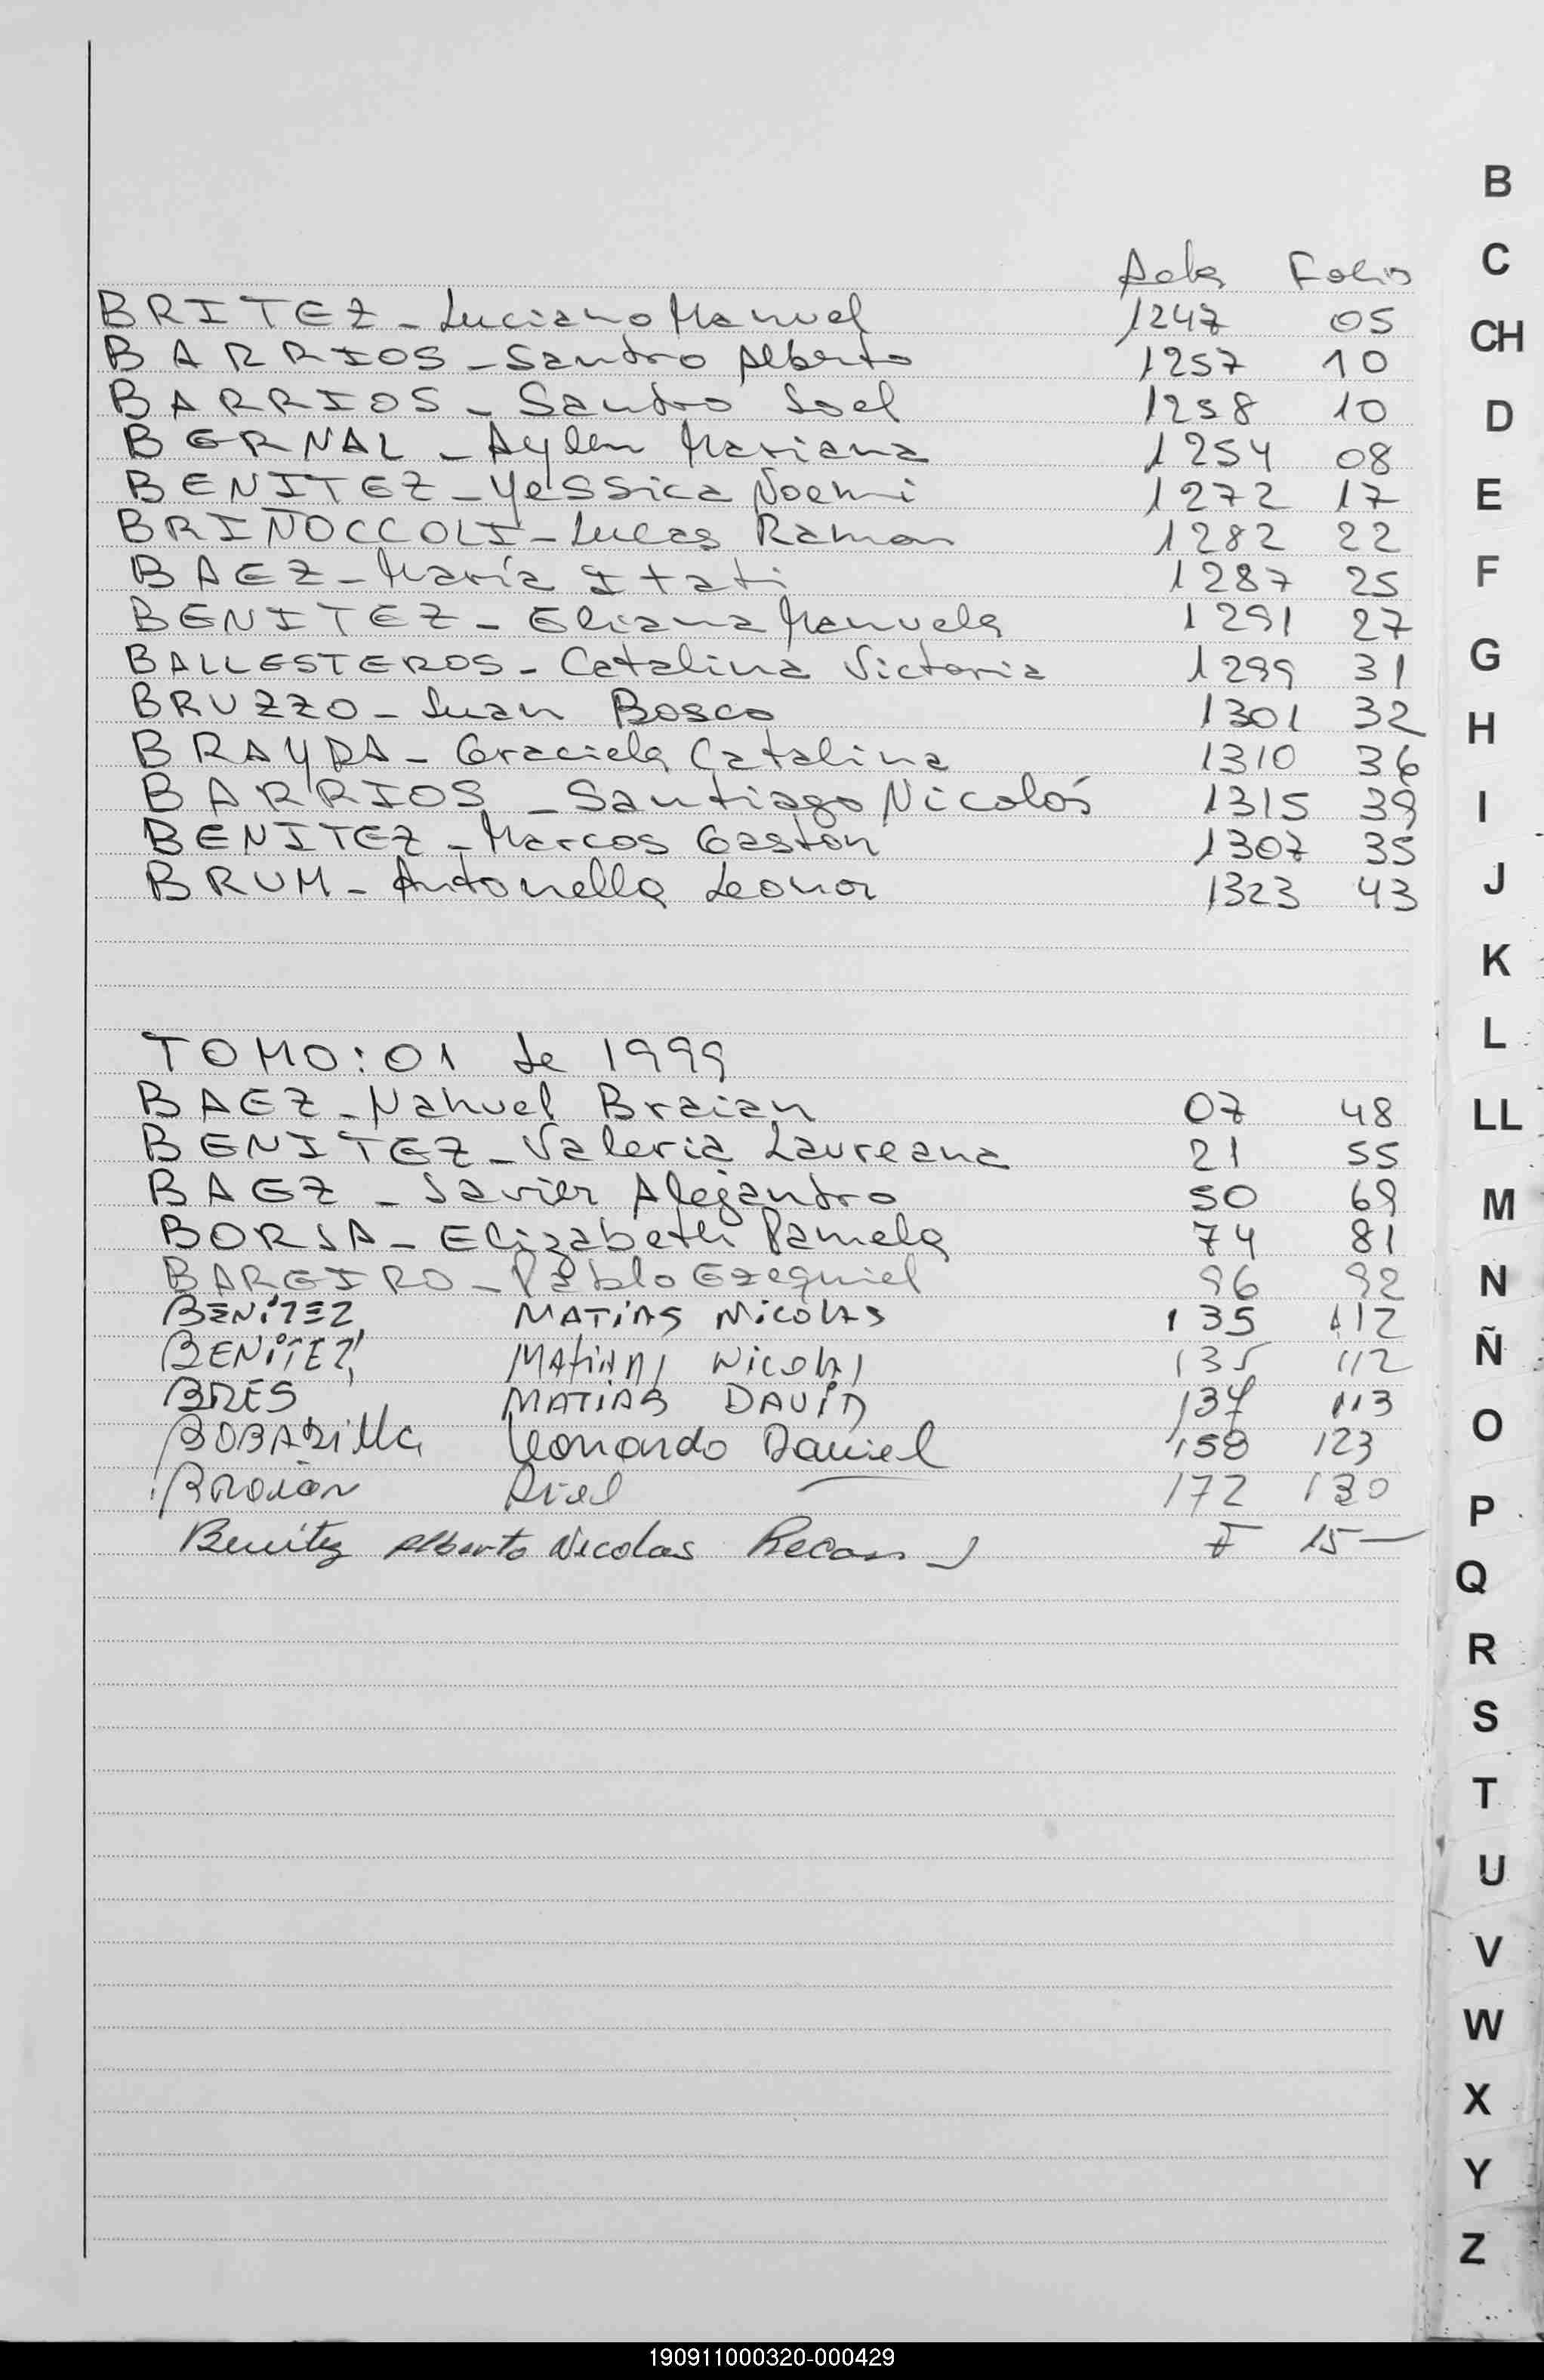 Acta Folio
BRITEZ - Luciano Manuel 1247 05
BARRIOS - Sandro Alberto 1257 10
BARRIOS - Sandro Joel 1258 10
BERNAL - Aylen Mariana 1254 08
BENITEZ - Yessica Noemi 1272 17
BRIÑOCCOLI - Lucas Ramon 1282 22
BAEZ - María Itati 1287 25
BENITEZ - Eliana Manuela 1291 27
BALLESTEROS - Catalina Victoria 1299 31
BRUZZO - Juan Bosco 1301 32
BRAYDA - Graciela Catalina 1310 36
BARRIOS - Santiago Nicolás 1315 39
BENITEZ - Marcos Gastón 1307 35
BRUM - Antonella Leonor 1323 43
TOMO: 01 de 1999
BAEZ - Nahuel Braian 07 48
BENITEZ - Valeria Laureana 21 55
BAEZ - Javier Alejandro 50 69
BORJA - Elizabeth Pamela 74 81
BAREIRO - Pablo Ezequiel 96 92
BENITEZ MATIAS NICOLAS 135 112
BENITEZ, MATIAS NICOLAS 135 112
BRES MATIAS DAVID 137 113
BOBADILLA Leonardo Daniel 158 123
Ariel 172 130
Benitez Alberto Nicolas I 15
B
C
CH
D
E
F
G
H
I
J
K
L
LL
M
N
Ñ
O
P
Q
R
S
T
U
V
W
X
Y
Z
190911000320-000429